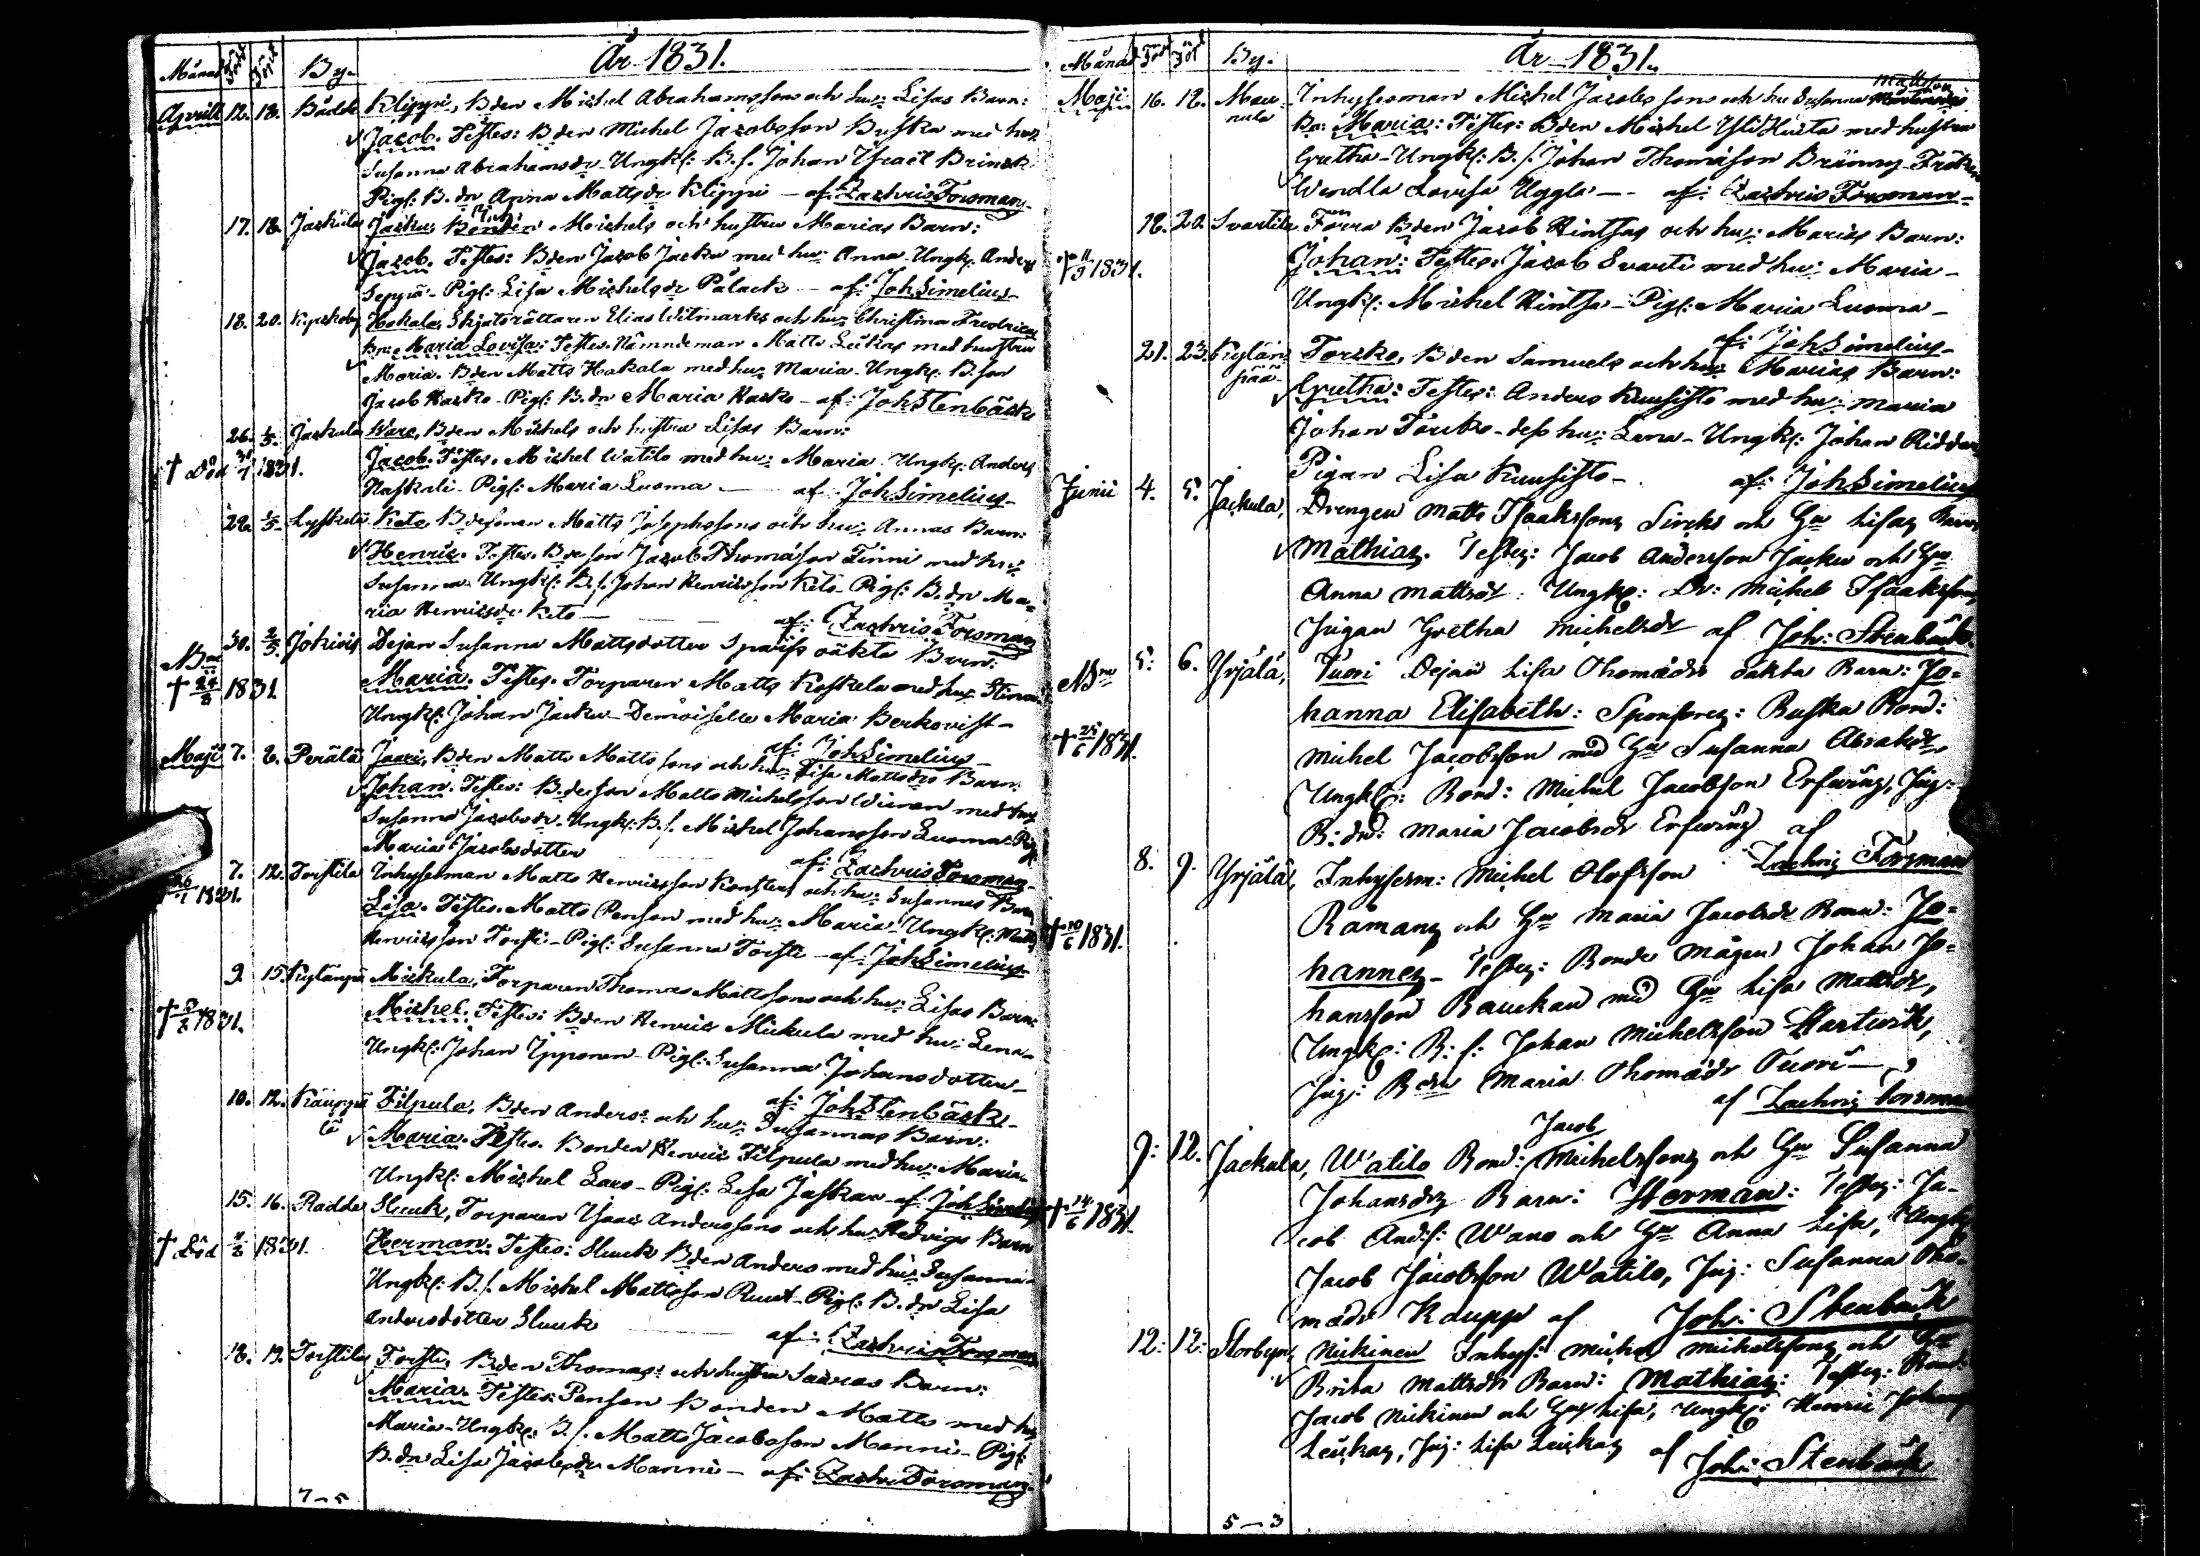 År 1831.
Månad Född Döpt By.
Aprill 12. 18. Rådde Klippi, Bden Michel Abrahamssons och hu: Lisas Barn:
Jacob. Testes: Bden Michel Jacobsson Buska med hu:
Susanna Abrahamsdr. Ungk: B.s. Johan Israël Brinck
Pig: B.dr Anna Mattsdr Klippi — af: Zachris Forsman
17. 18. Jackula Jacku, Bonden Michels och hustru Marias Barn:
Jacob. Testes: Bden Jacob Jacku med hu: Anna. Ungk: Anders
Seppä - Pig: Lisa Michelsdr Palack — af: Joh Simelius
18. 20. Kyrckoby Hakala, Skjutsrättaren Elias Witmarks och hu: Christina Fredricas
Bn: Maria Lovisa: Testes: Nämndeman Matts Luckas med hustru
Maria. Bden Matts Hakala med hu: Maria - Ungk: B.son
Jacob Kasko - Pig: B.dr Maria Kasko - af: Joh Stenbäck
26. 1/5. Jackula Ware, Bden Michels och hustru Lisas Barn:
† död 1831. Jacob. Testes. Michel Watilo med hu: Maria. Ungk: Anders
Naskali - Pig: Maria Luoma — af Joh Simelius
29. 1/5. Keto, Bdesonen Matts Josephssons och hu: Annas Barn:
Henric. Testes. Bdeson Jacob Thomason Finni med hu:
Susanna Ungk: B.s. Johan Henricsson Keto. Pig: B.dr Ma-
ria Henricsdr Keto — af: Zachris Forsman
30. 2/5. Jokiois Dejan Susanna Mattsdotter oäkta Barn:
† 1831 Maria. Testes. Torparen Matts Koskela med hu: Stina
Ungk: Johan Jacku - Demoiselle Maria Berkqvist
af: Joh Simelius
Maji 7. 8. Perälä Jaari, Bden Matts Mattssons och hu: Lisa Mattsdrs Barn:
Johan. Testes: Bdesson Matts Michelsson med hu:
Susanna Jacobsdr. Ungk: B.s. Michel Johansson Luoma. Pig:
Maria Jacobsdotter af: Zachris Forsman
7. 12. Torstila Inhysesman Matts Henricsson och hu: Susannas Barn
1831. Lisa. Testes. Matts Penson med hu: Maria. Ungk: Matts
Henricsson Torsti - Pig: Susanna Torsti - af: Joh Simelius
9. 15. Kylänpä Mickula, Torparen Thomas Mattssons och hu: Lisas Barn:
† 1831. Michel. Testes: Bden Henric Mickula med hu: Lena
Ungk: Johan Ypponen - Pig: Susanna Johansdotter
af: Joh Stenbäck
10. 12. Filpula, Bden Anders och hu: Susannas Barn:
Maria. Testes. Bonden Henric Filpula med hu: Maria
Ungk: Michel Laro - Pig: Lisa Jaskar af Joh Simelius
15. 16. Rådde Sluuk, Torparen Isaac Anderssons och hu: Hedvigs Barn
† Död 1831. Herman. Testes: Sluuk Bden Anders med hu: Susanna
Ungk: B.s. Michel Mattsson Ruut - Pig: B.dr Lisa
Andersdotter Sluuk — af: Zachris Forsman
18. 19. Torstila Torsti, Bden Thomas och hustru Saaras Barn:
Maria. Testes: Penson Bonden Matts med hu:
Maria - Ungk: B.s. Matts Jacobsson Manni - Pig:
B.dr Lisa Jacobsdr Manni - af: Zachr. Forsman.
7-5
År 1831.
Månad Född Döpt By.
Maji 16. 18. Mau-
nula Inhysesman Michel Jacobssons och hu Susanna Mattsdrs
Bn: Maria: Testes: Bden Michel med hustru
Gretha - Ungk: B.s. Johan Thomason Fröken
Wendla Lovisa Uggla — af: Zachris Forsman
18. 20. Svartila Förra Bden Jacob Hintsas och hu: Marias Barn:
† 1831. Johan: Testes. Jacob Svarti med hu: Maria
Ungk: Michel Hintsa - Pig: Maria Luoma
af: Joh Simelius
21. 23. Kylän-
pää Torcko, Bden Samuels och hu: Marias Barn:
Gretha: Testes: Anders Kuusisto med hu: Maria
Johan Torcko - dess hu: Lena - Ungk: Johan Ridder
Pigan Lisa Kuusisto - af: Joh Simelius
Junii 4. 5. Jackula, Drengen Matts Isaakssons Sircks och Hu Lisas Barn
Mathias. Testes: Jacob Andersson Jacku och Hu
Anna Mattsdr. Ungk: Dr: Michel Isaaksson,
Pigan Gretha Michelsdr af Joh: Stenbäck.
5. 6. Yrjälä, Tuori Dejan Lisa Thomädrs oäkta Barn: Jo-
hanna Elisabeth: Sponsores: Buska Bond:
† 1831. Michel Jacobsson med Hu Susanna Abrahdr,
Ungk: Bond: Michel Jacobsson Erfwing, Pig:
B: dr: Maria Jacobsdr Erfwing af
Zachris Forsman
8. 9. Yrjälä, Inhysesm: Michel Olofsson
Ramans och Hu Maria Jacobsdr Barn: Jo-
† 1831. hannes - Testes: Bonde Mågen Johan Jo-
hansson Rauckan med Hu Lisa Mattsdr,
Ungk: B: s: Johan Michelsson Hartwik,
Pig: Bdr Maria Thomädr Tuori —
af Zachris Forsman
9: 12. Jackula, Watilo Bond: Jacob Michelssons och Hu Susanna
Johansdrs Barn: Herman: Testes: Ja-
† 1831. cob And:s: Ware och Hu Anna Lisa, Ungk
Jacob Jacobsson Watilo, Pig: Susanna Tho-
mädr Kaupp af Joh: Stenbäck
12: 12: Storbyn, Nickinen Inhys: Michel Michelssons och Hu
Brita Mattsdrs Barn: Mathias: Testes: Bond:
Jacob Nickinen och Hu Lisa, Ungk: Henric Johans
Leuckas, Pig: Lisa Leuckas af Joh: Stenbäck
5-3